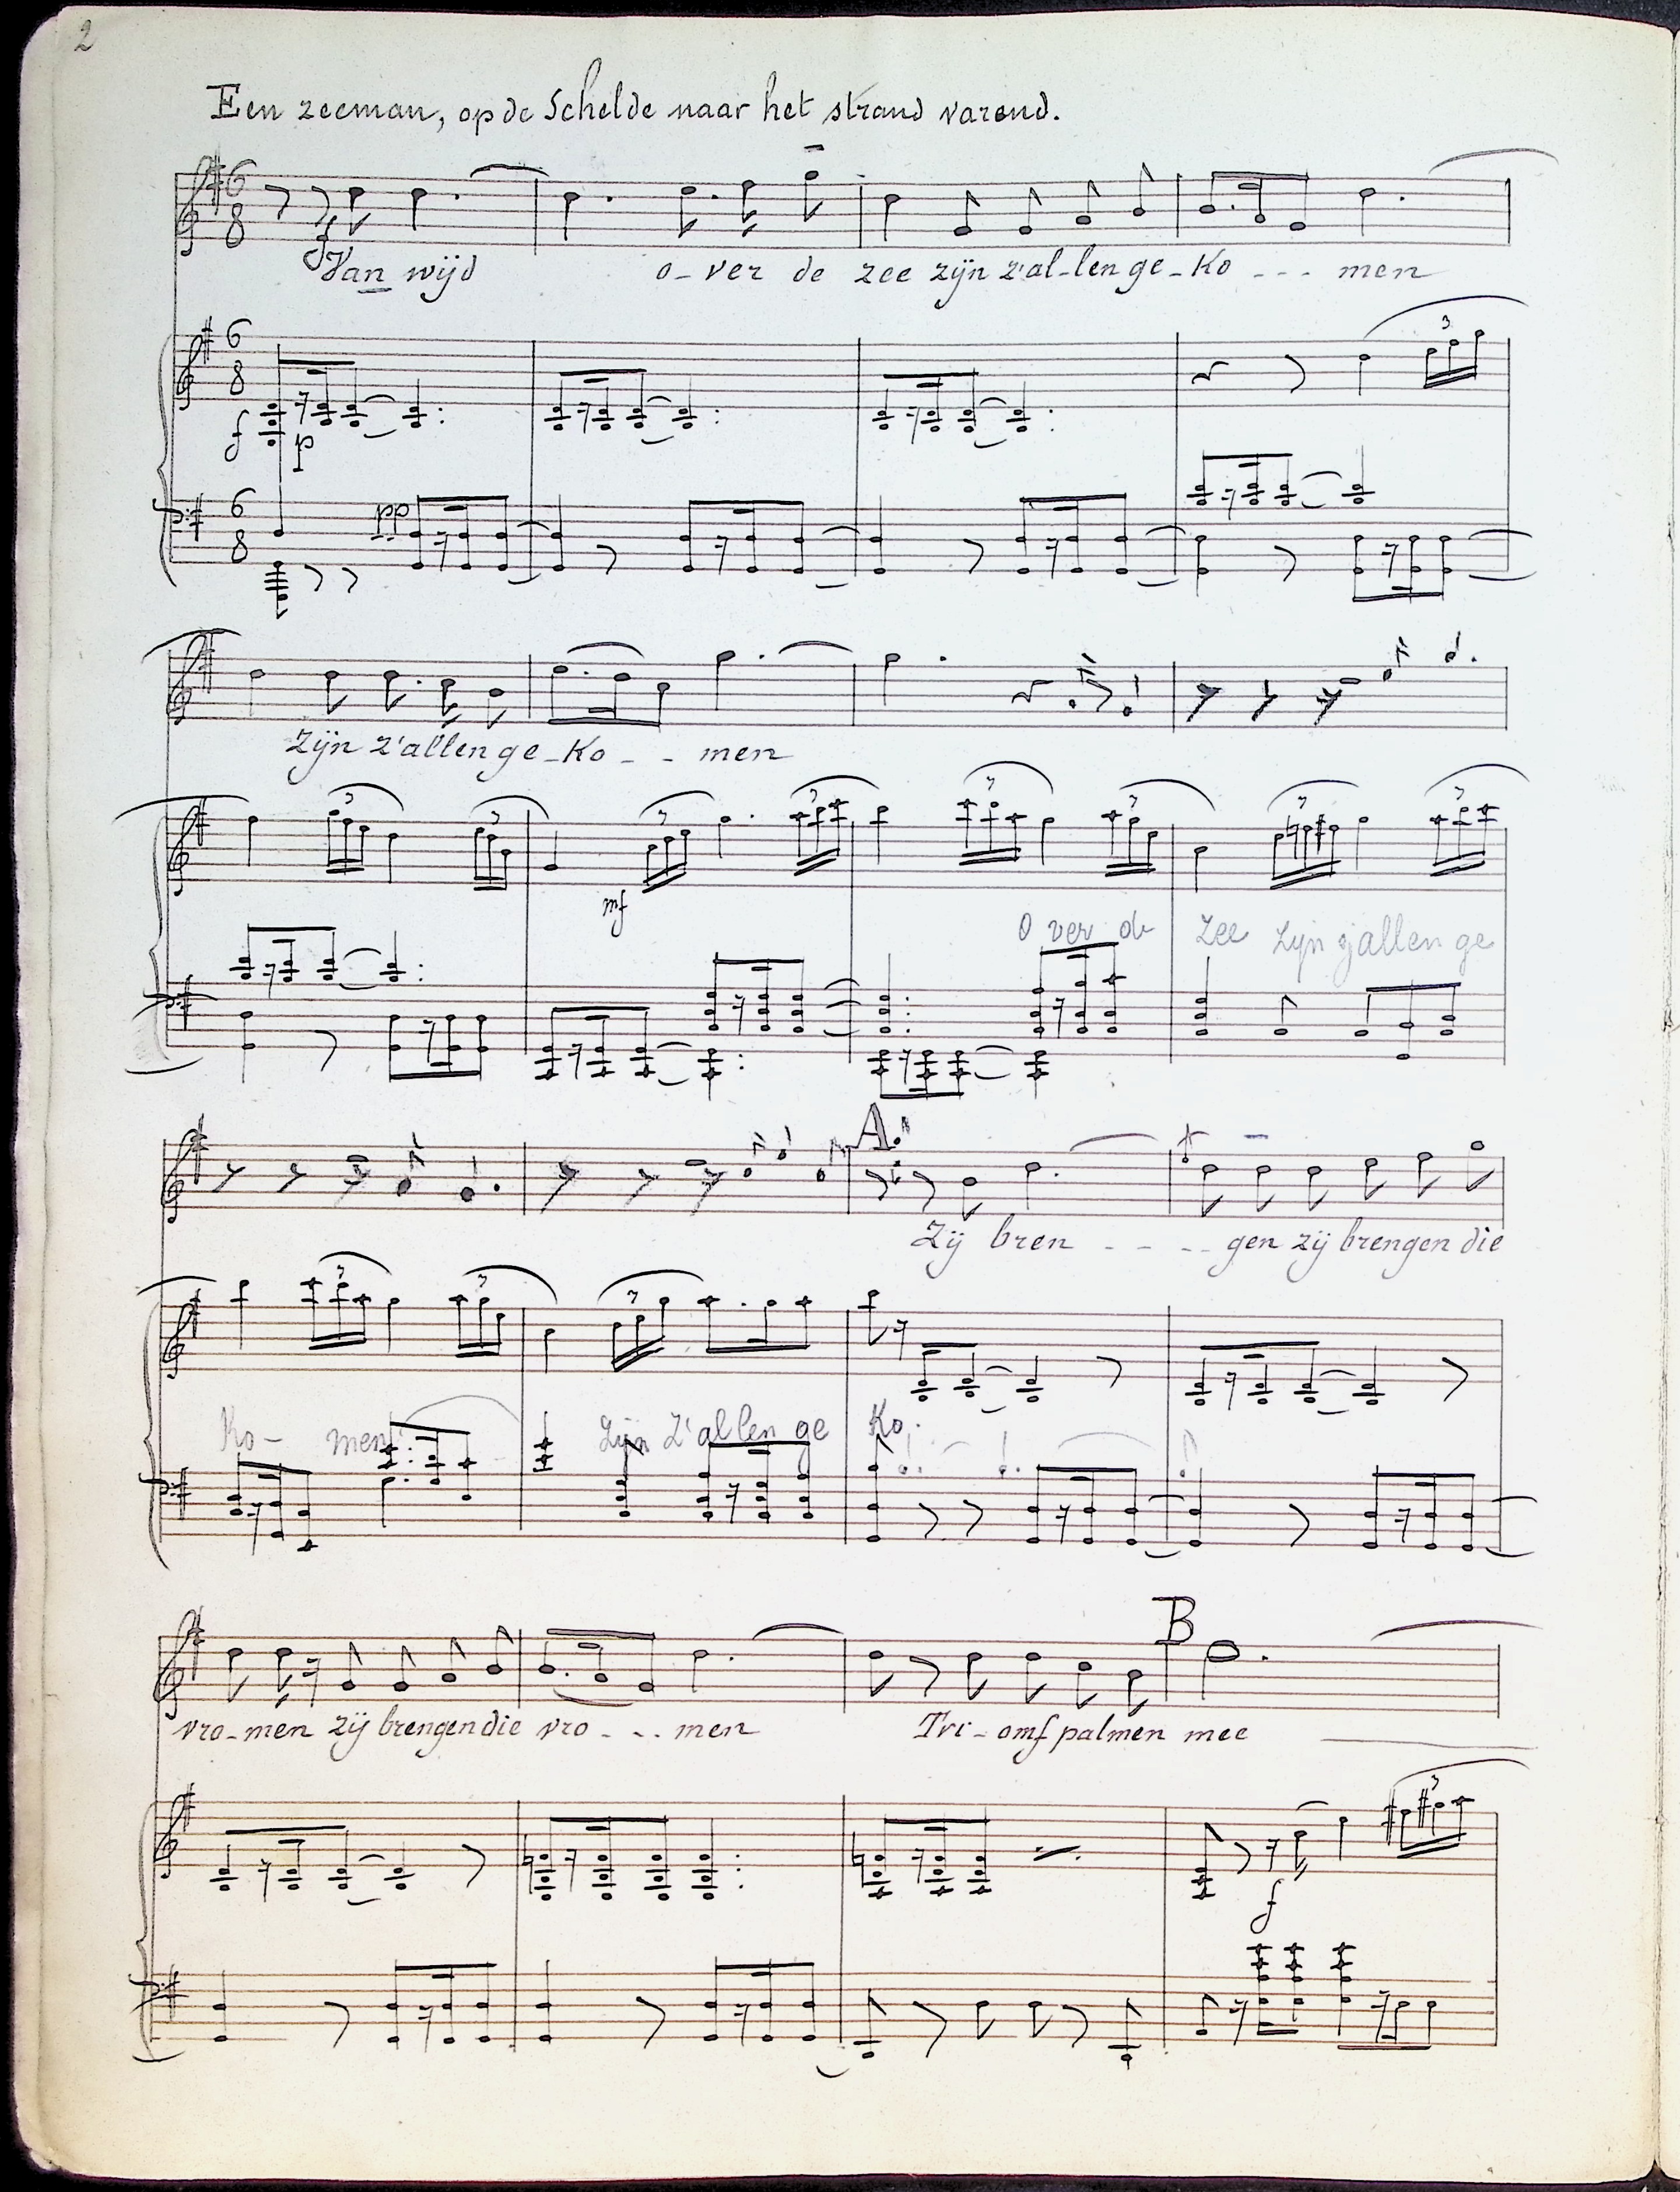 2
Een zeeman, op de Schelde naar het strand varend.
6 8
f
Van wijd o-ver de zee zijn z'al-len ge-ko - - - men
6 8
3
f p
6 8 pp
Zijn z'allen ge-ko - - men
3 3 3 3 3 3 3 3
mf
O ver de zee zijn z'allen ge
A.
Zij bren - - - - gen zij brengen die
3 3 3
Ko- men zijn z'allen ge Ko.
B
vro-men zij brengen die vro - - - men Tri-omf palmen mee
3
f